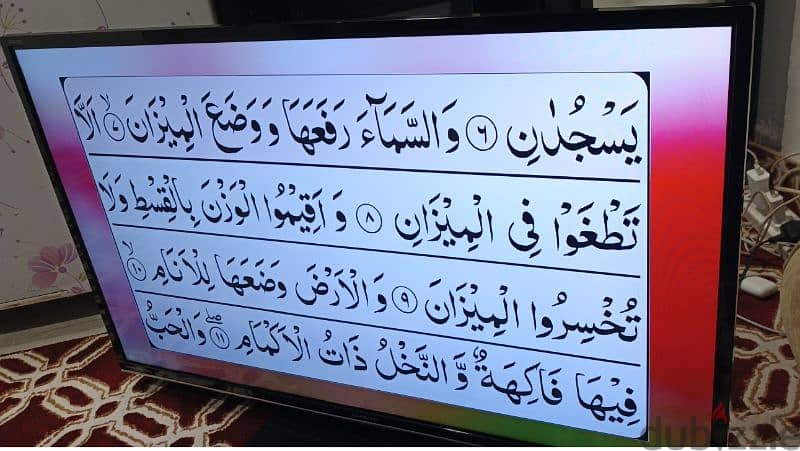 يَسْجُدٰنِ ۶ وَالسَّمَآءَ رَفَعَهَا وَوَضَعَ الْمِيْزَانَ ۙ۷ اَلَّا
تَطْغَوْا فِى الْمِيْزَانِ ۸ وَ اَقِيْمُوا الْوَزْنَ بِالْقِسْطِ وَلَا
تُخْسِرُوا الْمِيْزَانَ ۹ وَ الْاَرْضَ وَضَعَهَا لِلْاَنَامِ ۙ۱۰
فِيْهَا فَاكِهَةٌ وَّ النَّخْلُ ذَاتُ الْاَكْمَامِ ۖ۱۱ وَالْحَبُّ
dubizzle